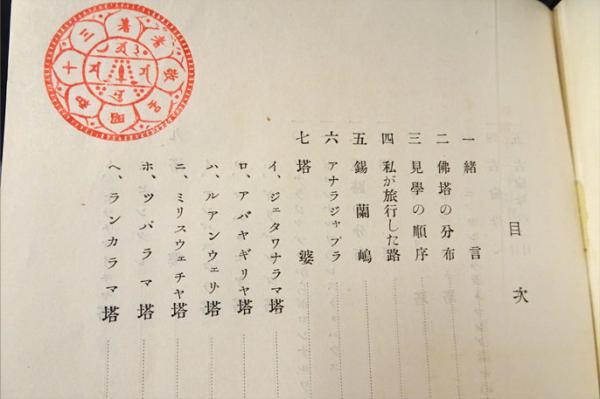 目次
一 緒言
二 佛塔の分布
三 見學の順序
四 私が旅行した路
五 錫蘭嶋
六 アナラジャプラ
七 塔婆
イ、ジェタワナラマ塔
ロ、アバヤギリヤ塔
ハ、ルアンウェリ塔
ニ、ミリスウェチャ塔
ホ、ツパラマ塔
ヘ、ランカラマ塔
昭和十三
著者
呈